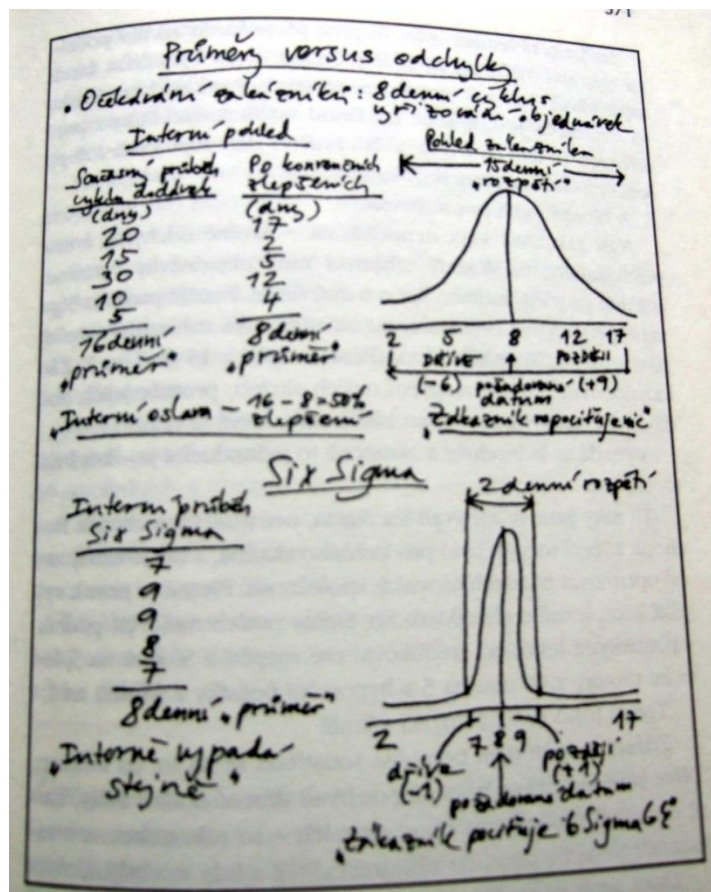 Průměry versus odchylky
• Očekávání zákazníků: 8denní cyklus
vyřizování objednávek
Interní pohled
Současný průběh
cyklu dodávek
(dny)
20
15
30
10
5
16denní
"průměr"
Po konvenčních
zlepšeních
(dny)
17
2
5
12
4
8denní
"průměr"
"Interní oslava – 16 – 8 = 50%
zlepšení
Pohled zákazníka
15denní
"rozpětí"
2 5 8 12 17
DŘÍVE POZDĚJI
(–6) požadované (+9)
datum
"Zákazník nepociťuje nic"
Six Sigma
Interní průběh
Six Sigma
7
9
9
8
7
8denní "průměr"
"Interně vypadá
stejně"
2denní rozpětí
2 7 8 9 17
dříve
(–1)
později
(+1)
požadované datum
"Zákazník pociťuje 6 Sigma 6ξ"